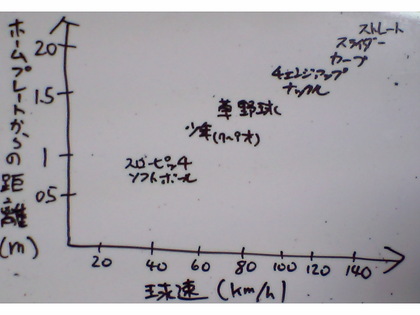 ホームプレートからの距離(m)
2.0
1.5
1
0.5
ストレート
スライダー
カーブ
4ェンジアップ
ナックル
草野球
少年(7~9才)
スローピッ4
ソフトボール
20
40
60
80
100
120
140
球速 (km/h)